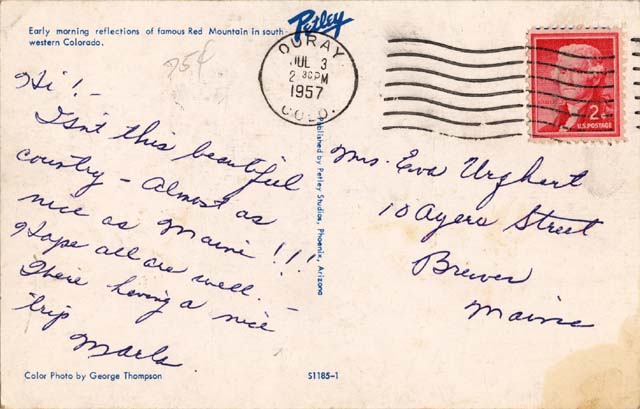 Early morning reflections of famous Red Mountain in south-
western Colorado.
Petley
25¢
OURAY
JUL 3
2 30 PM
1957
COLO.
2¢
U.S. POSTAGE
Hi! -
Isn't this beautiful
country - almost as
nice as Maine!!!
Hope all are well. -
There having a nice
trip
Marla
Published by Petley Studios, Phoenix, Arizona
Mrs. Eva Urghart
10 Ayers Street
Brewer
Maine
Color Photo by George Thompson
S1185-1